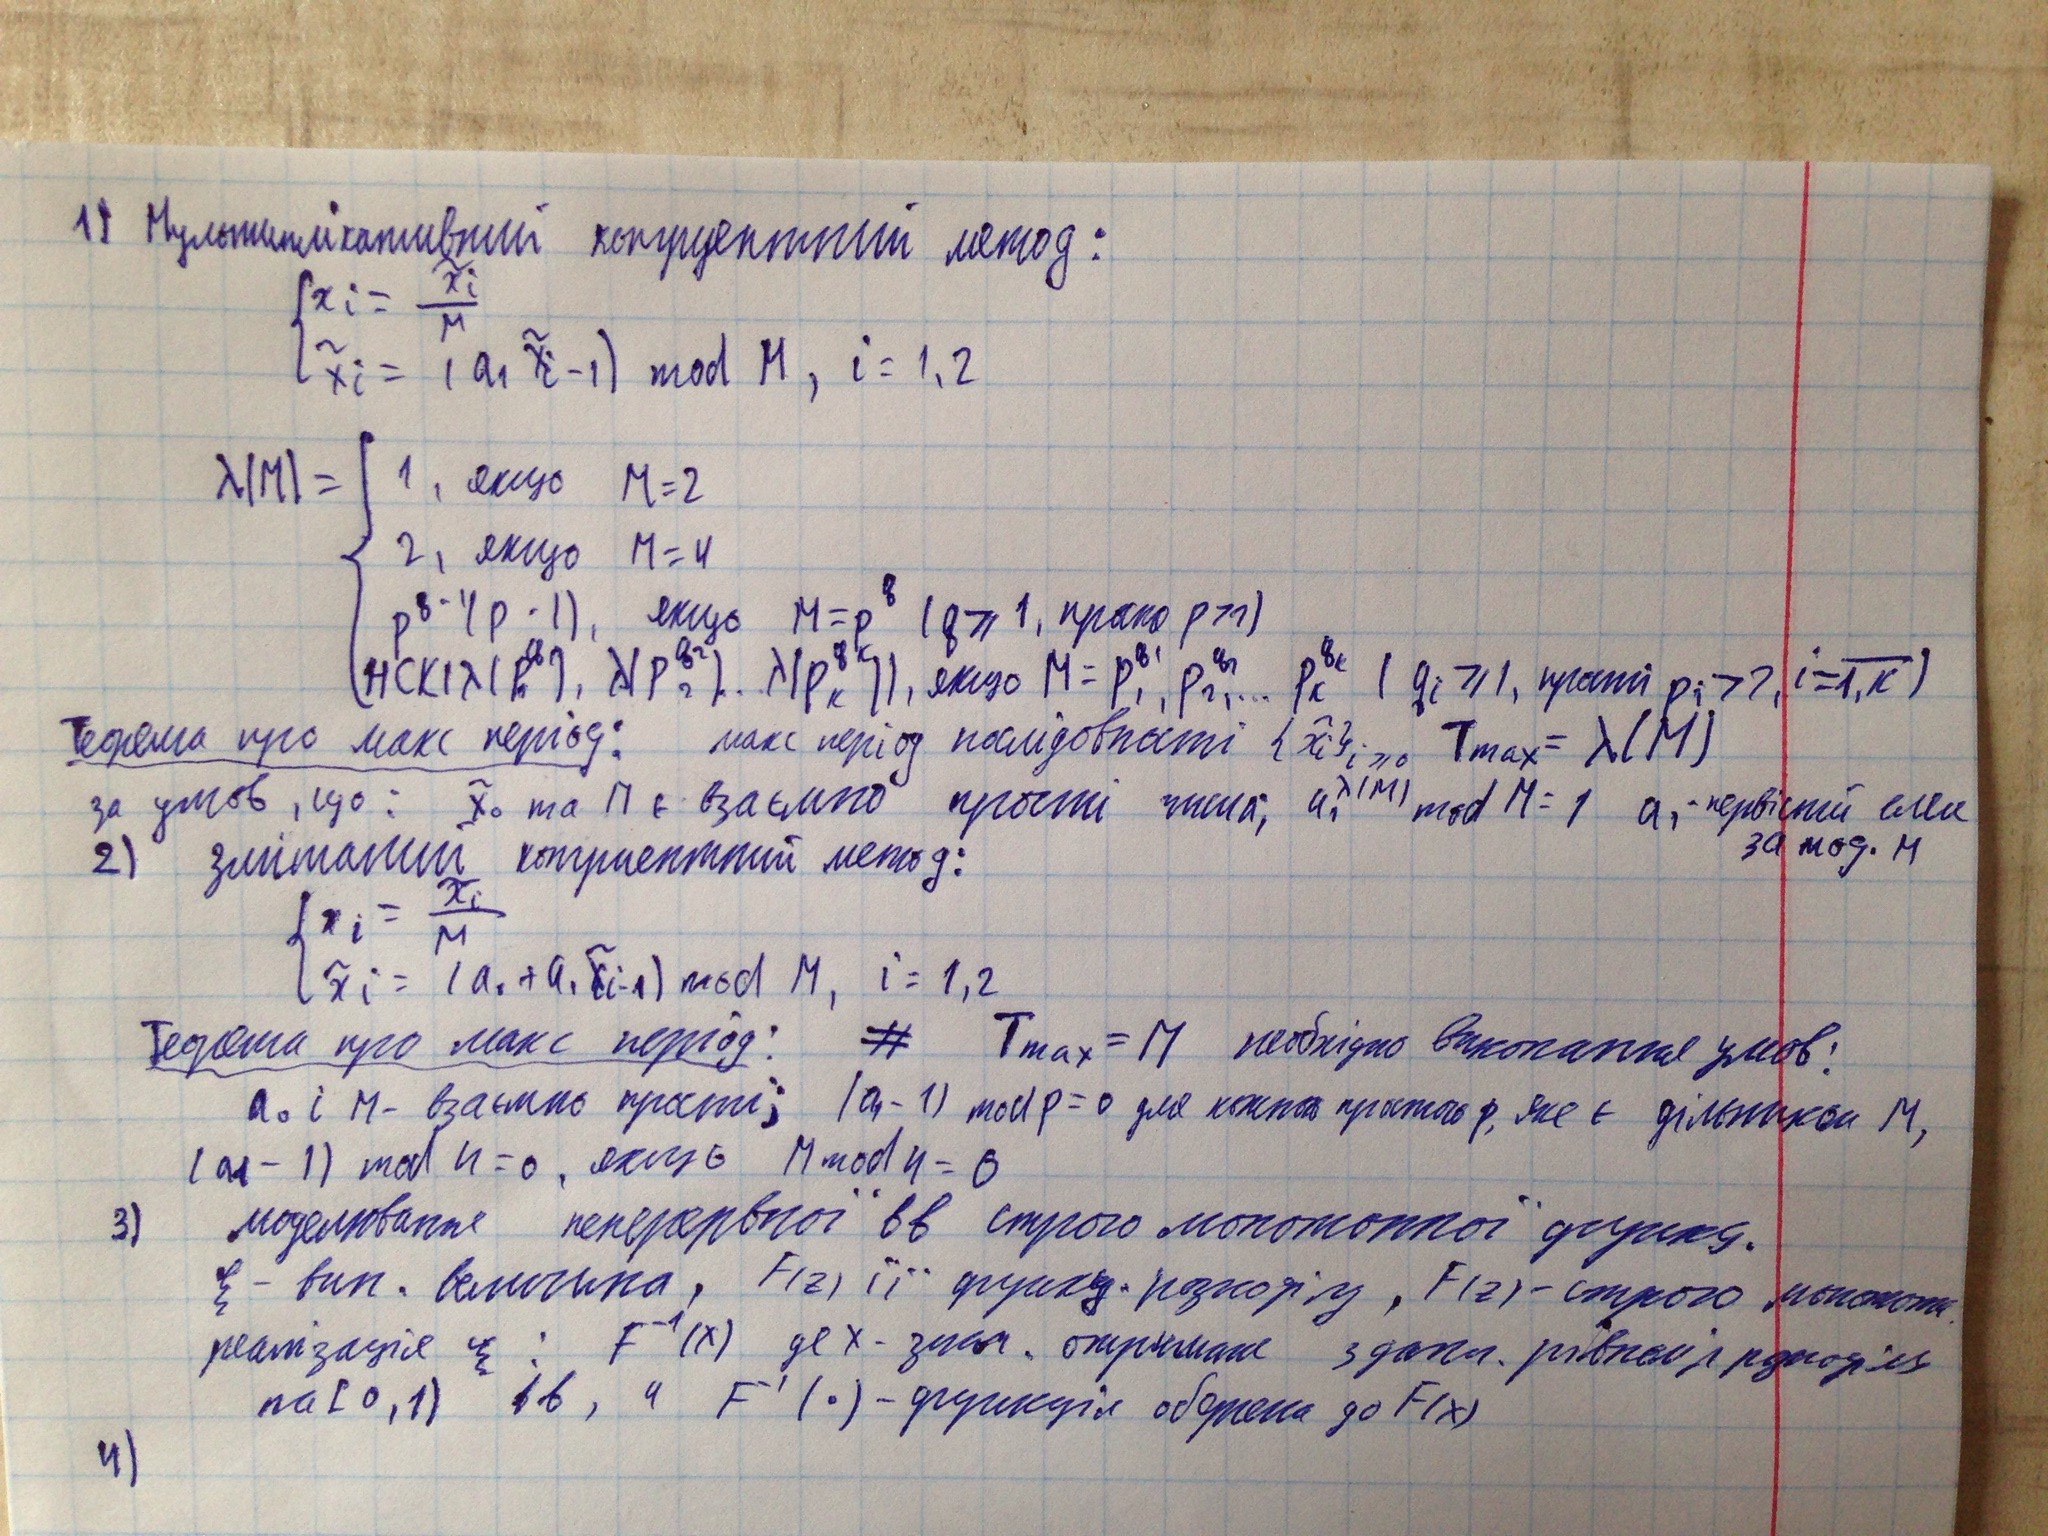 1) Мультиплікативний конгруентний метод:
{ xi = x̃i / M
x̃i = (a1 x̃i-1) mod M, i = 1,2
λ(M) = { 1, якщо M=2
2, якщо M=4
p^(q-1)(p-1), якщо M=p^q (q⩾1, просто p>2)
НСК(λ(p1^q1), λ(p2^q2).. λ(pk^qk)), якщо M = p1^q1, p2^q2, ... pk^qk (qi⩾1, прості pi>2, i=1,k)
Теорема про макс період: макс період послідовності {x̃i}i⩾0 Tmax = λ(M)
за умов, що: x̃0 та M є взаємно прості числа, a1^λ(M) mod M = 1 a1 - первісний елем
за мод. M
2) змішаний конгруентний метод:
{ xi = x̃i / M
x̃i = (a0 + a1 x̃i-1) mod M, i = 1,2
Теорема про макс період: Tmax = M необхідно виконання умов:
a0 і M - взаємно прості; (a1 - 1) mod p = 0 для кожного простого p, яке є дільником M,
(a1 - 1) mod 4 = 0, якщо M mod 4 = 0
3) моделювання неперервної вв строго монотонної функц.
ξ - вип. величина, F(z) її функц. розподілу, F(z) - строго монотон.
реалізація ξ : F^-1(x) де x - знач. отримане з рівномір розподіл
на [0,1) вв, а F^-1(·) - функція обернена до F(x)
4)